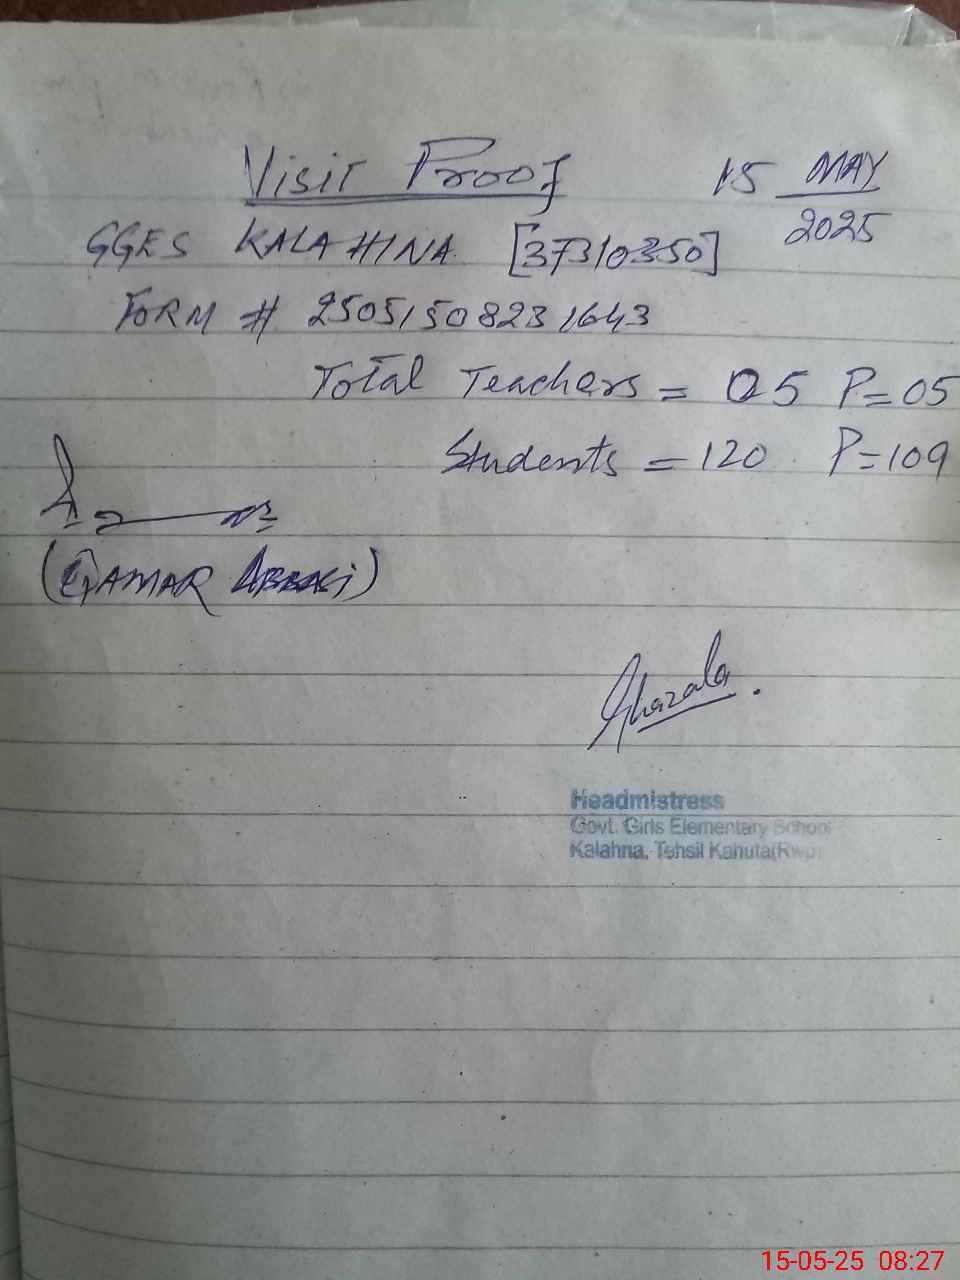 Visit Proof 15 MAY 2025
GGES KALAHINA [37310350]
FORM # 25051508231643
Total Teachers = 05 P=05
Students = 120 P=109
(QAMAR ABBASI)
Ghazala.
Headmistress
Govt. Girls Elementary School
Kalahna, Tehsil Kahuta(Rwp)
15-05-25 08:27